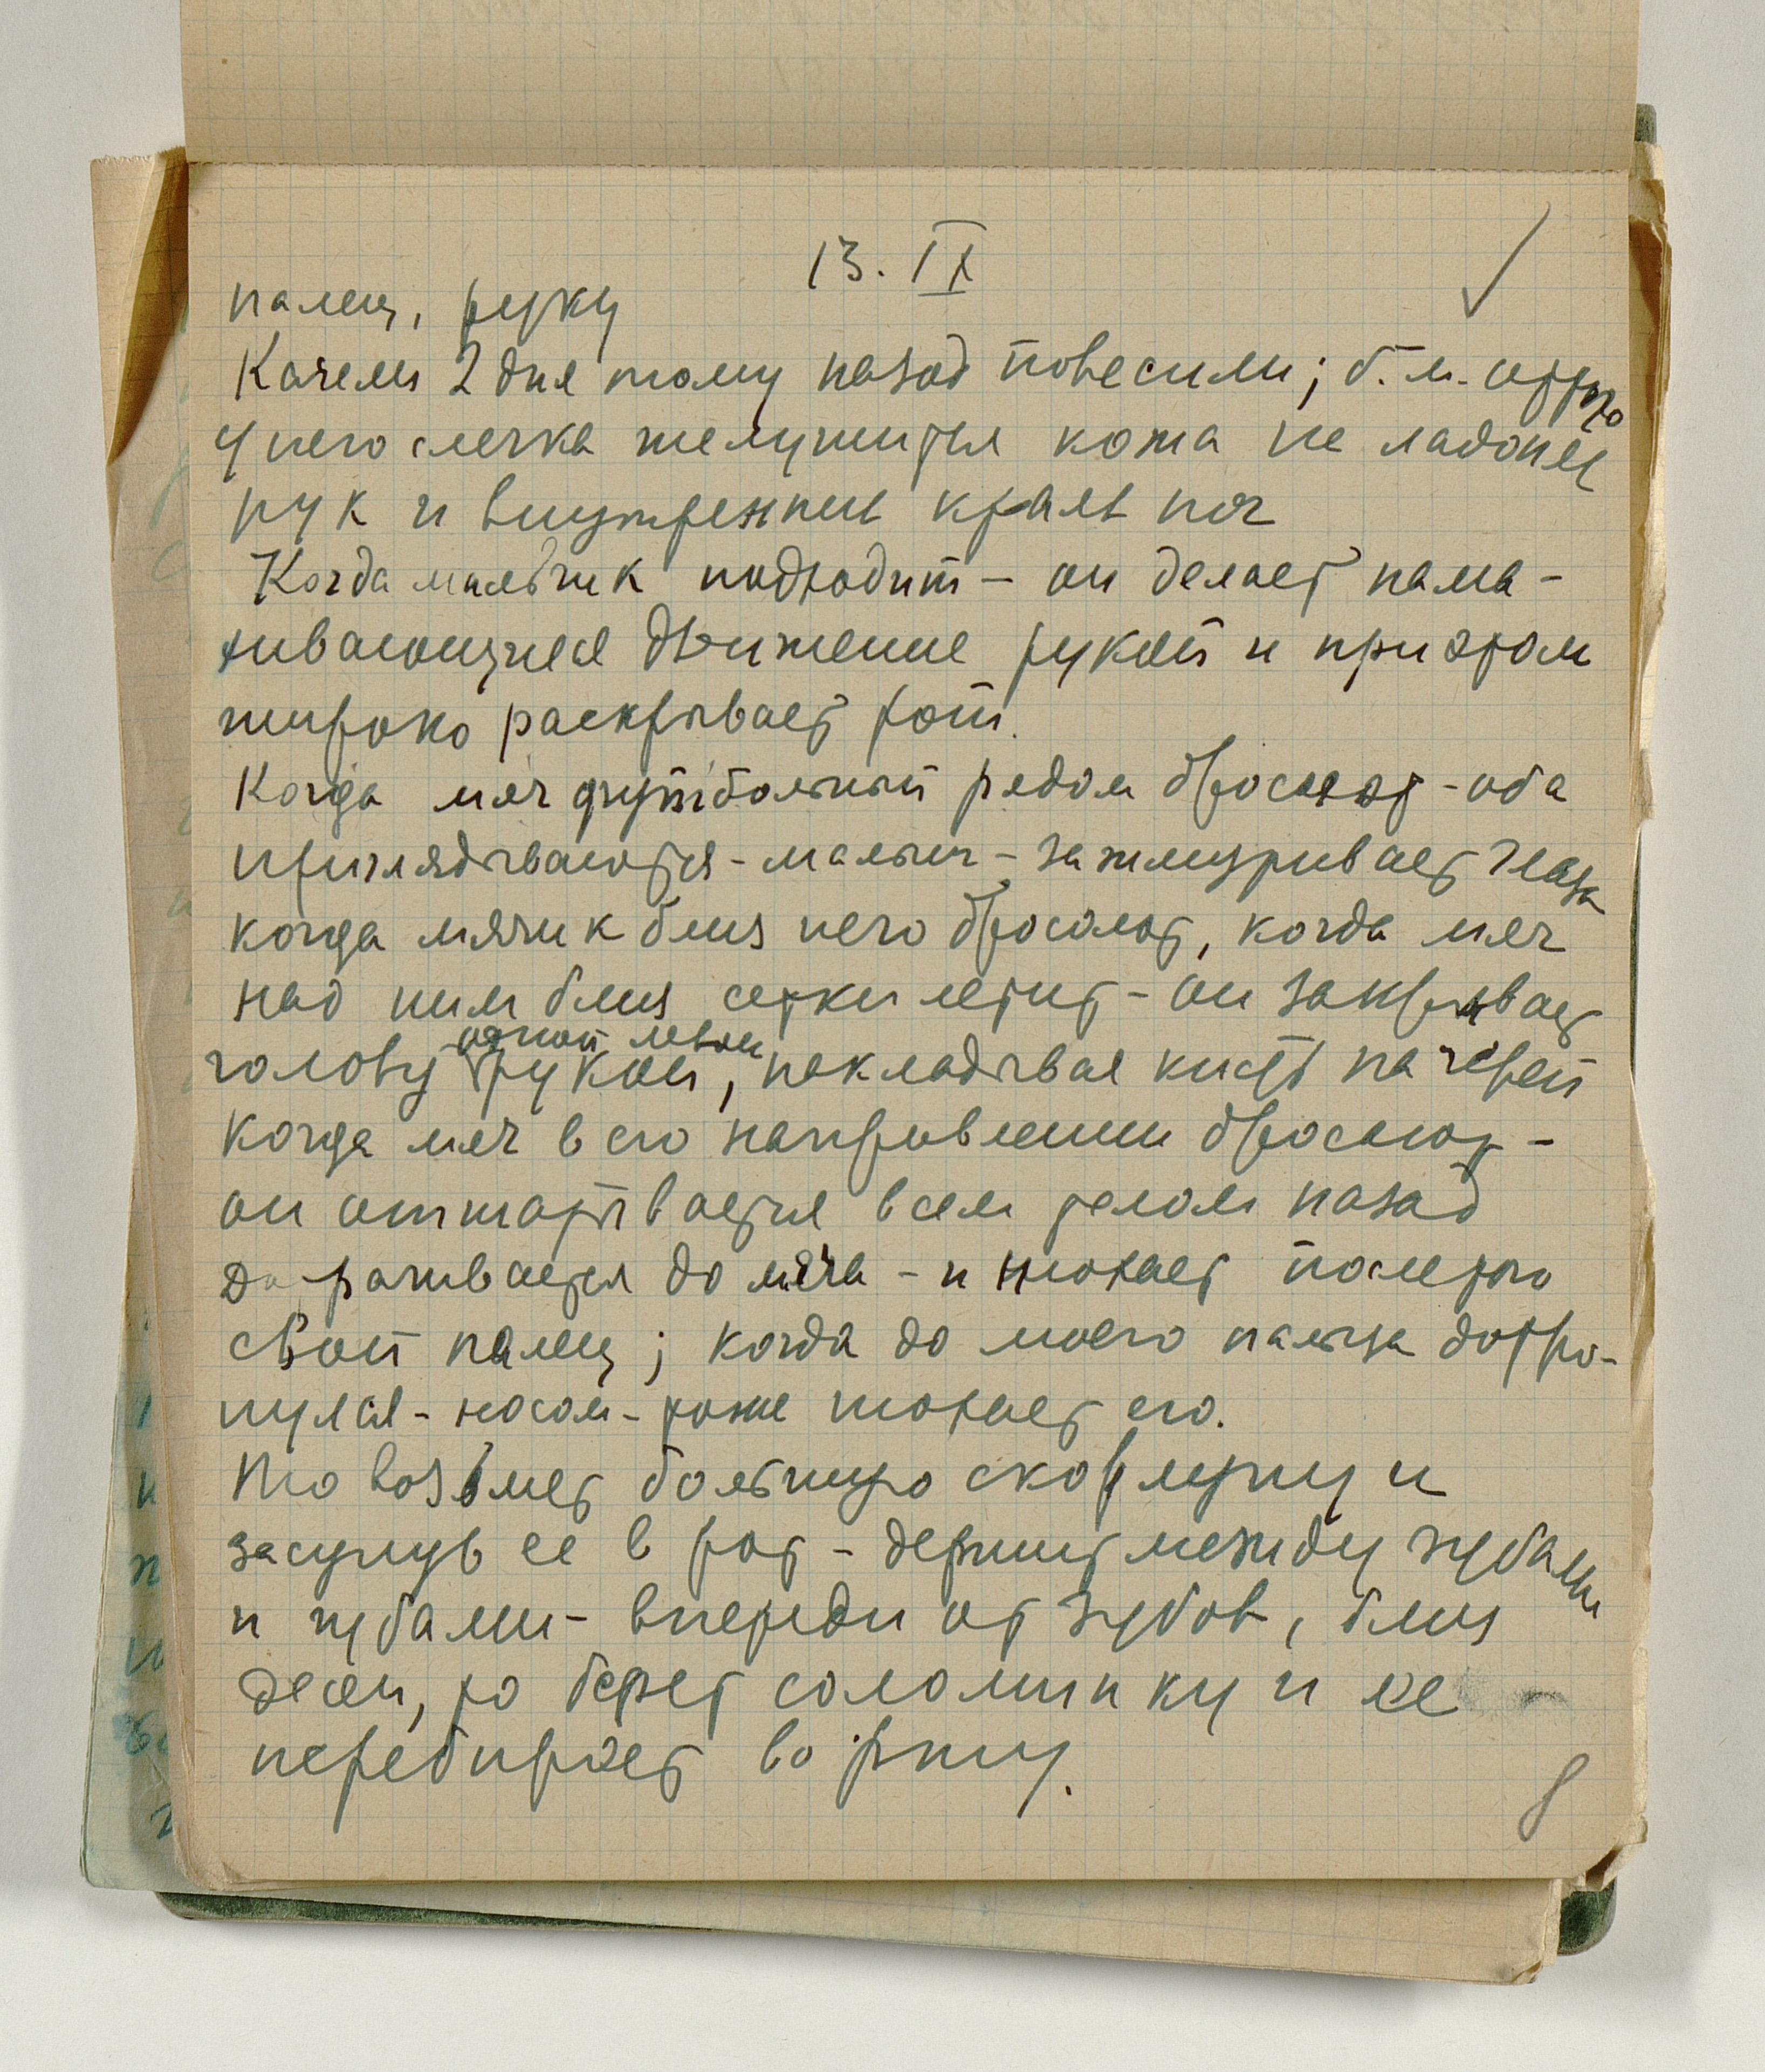 13. IX
палец, руку
Качели 2 дня тому назад повесили; б.м. оттого
у него слегка шелушится кожа не ладонях
рук и внутренних краях ног
Когда мальчик подходит – он делает нама-
хивающиеся движение рукой и при этом
широко раскрывает рот.
Когда мяч футбольный рядом бросают – оба
приглядываются – малыш – зажмуривает глаза
когда мячик близ него бросают, когда мяч
над ним близ сетки летит – он закрывает
голову одной левой рукой, накладывая кисть на череп
когда мяч в его направлении бросают –
он отшатывается всем телом назад
дотрагивается до мяча – и нюхает после того
свой палец; когда до моего пальца дотро-
нулся – носом – тоже нюхает его.
То возьмет большую скорлупу и
засунув ее в рот – держит между зубами
и губами – впереди от зубов, близ
десен, то берет соломинку и ее
перебирает во рту.